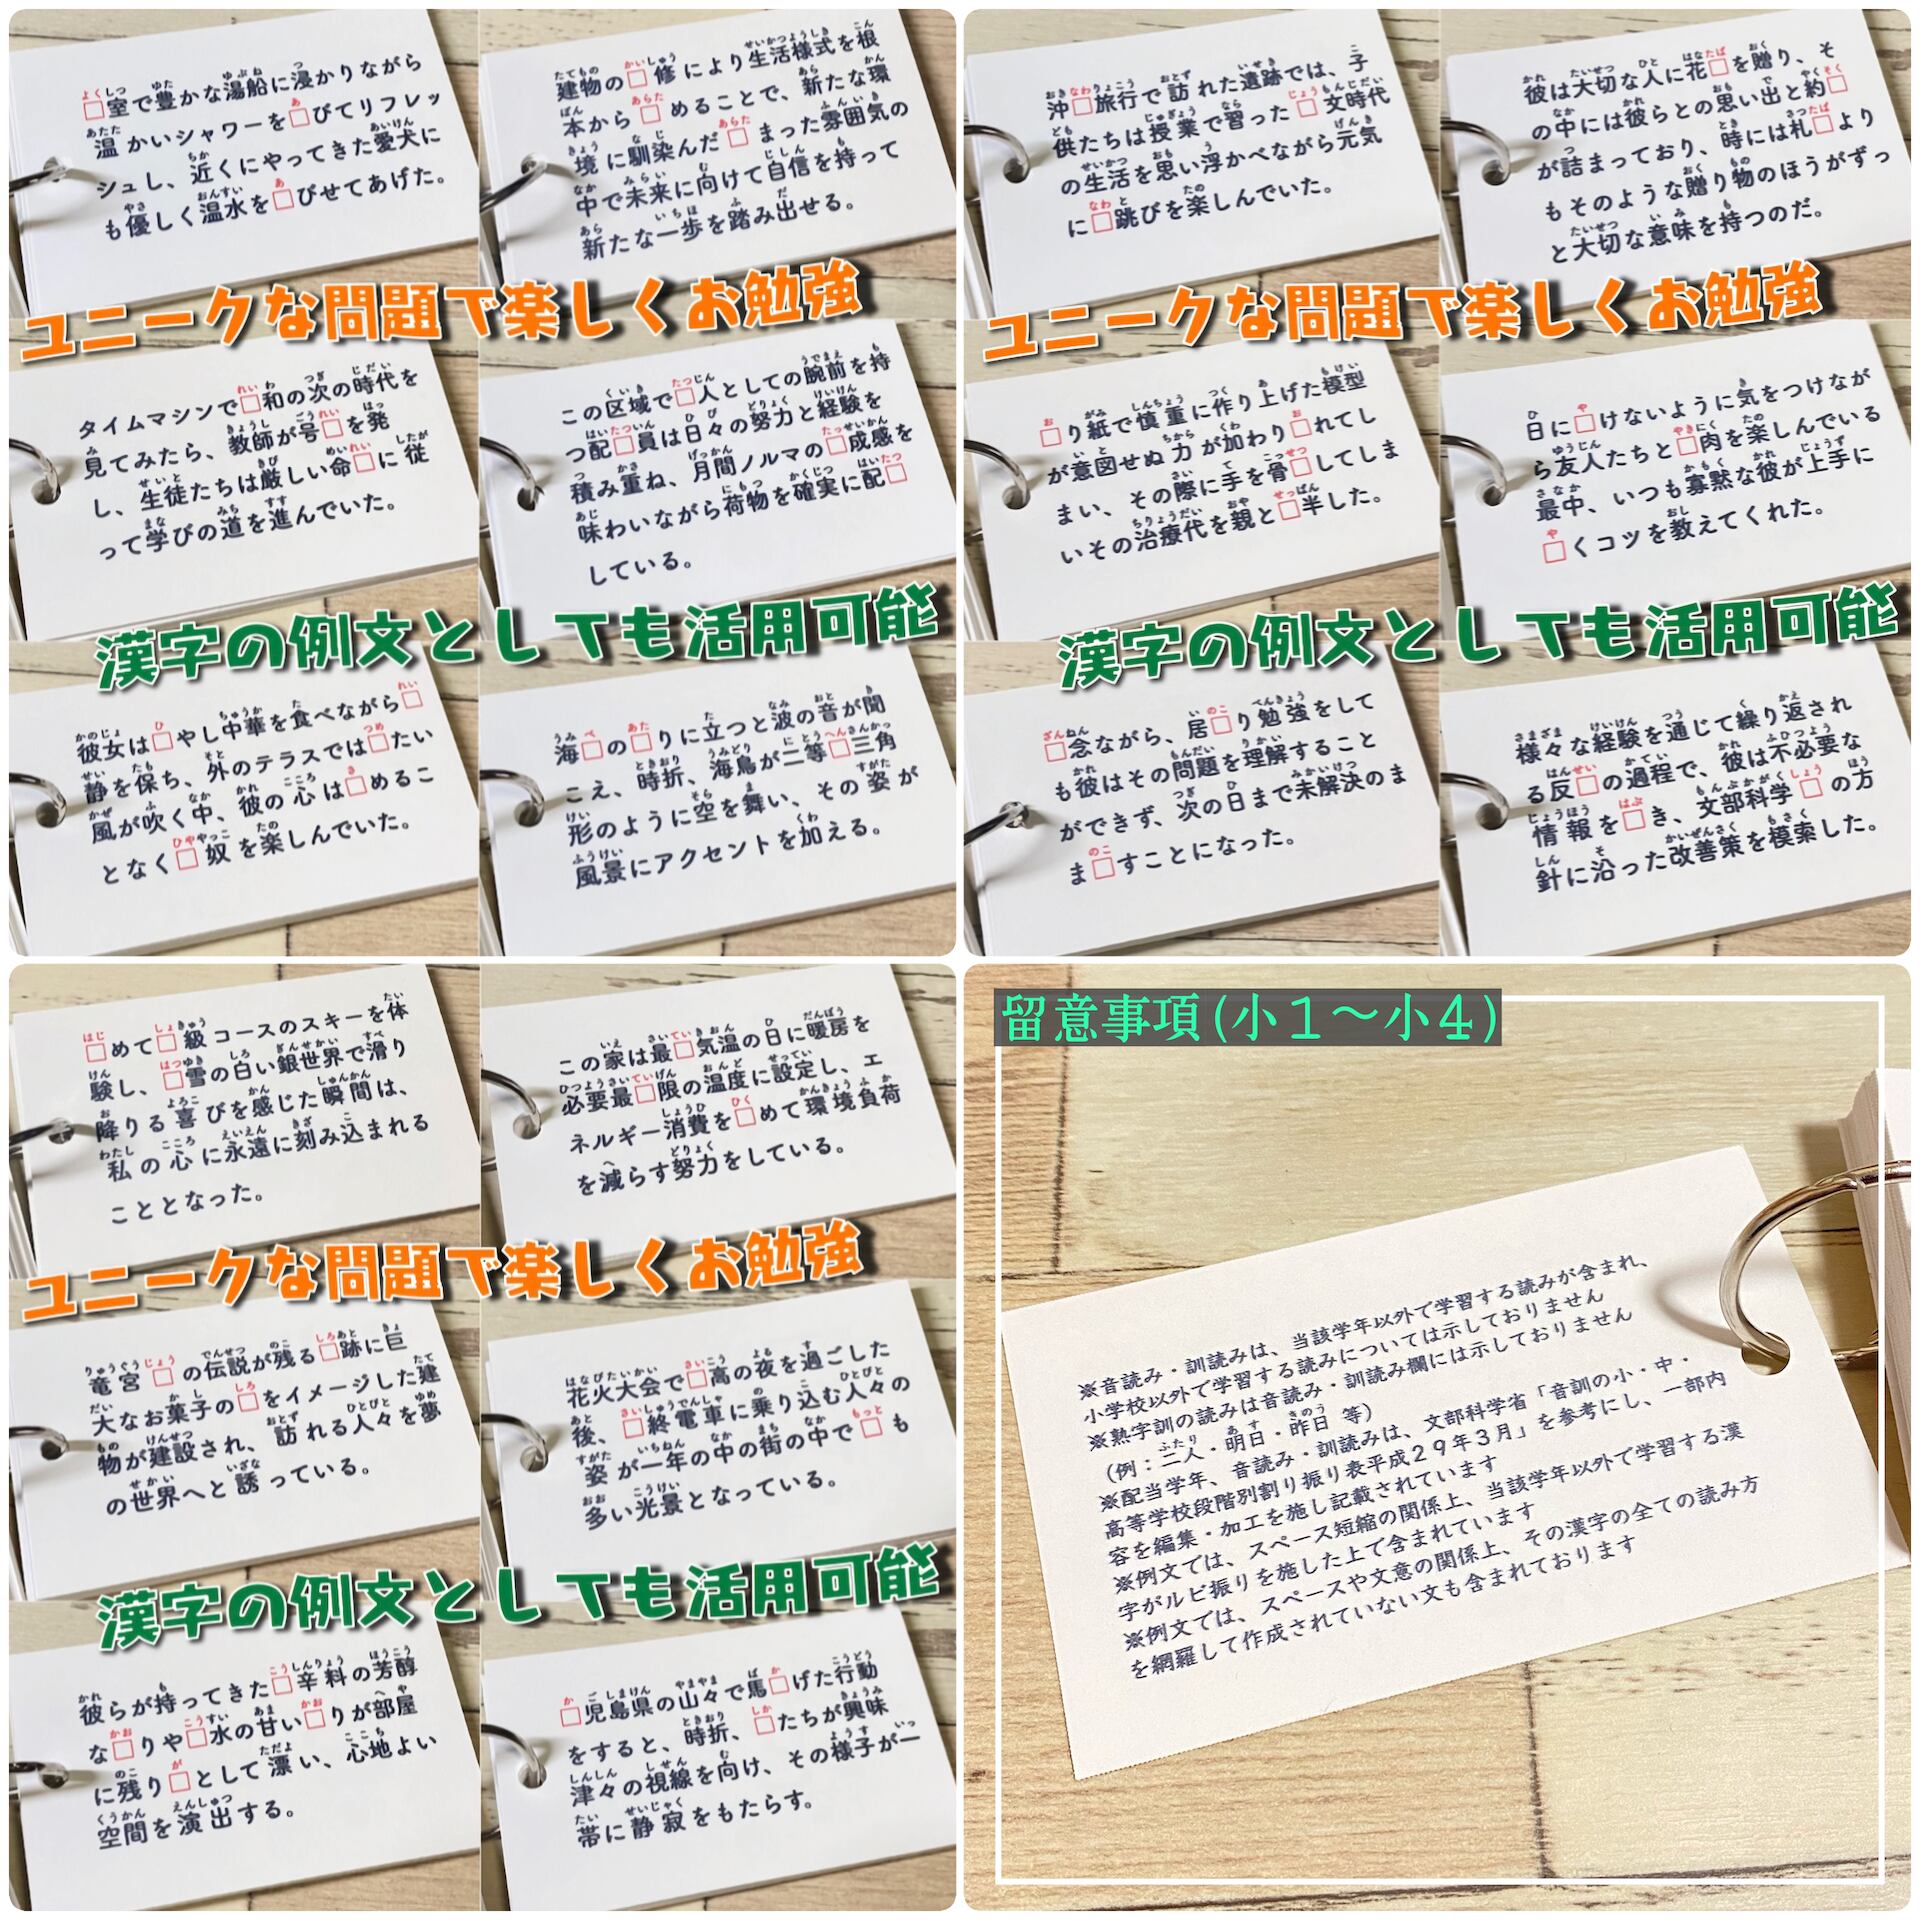 □室で豊かな湯船に浸かりながら
温かいシャワーを□びてリフレッ
シュし、近くにやってきた愛犬に
も優しく温水を□びせてあげた。
建物の□修により生活様式を根
本から□めることで、新たな環
境に馴染んだ□まった雰囲気の
中で未来に向けて自信を持って
新たな一歩を踏み出せる。
ユニークな問題で楽しくお勉強
タイムマシンで□和の次の時代を
見てみたら、教師が号□を発
し、生徒たちは厳しい命□に従
って学びの道を進んでいた。
この区域で□人としての腕前を持
つ配□員は日々の努力と経験を
積み重ね、月間ノルマの□成感を
味わいながら荷物を確実に配□
している。
漢字の例文としても活用可能
彼女は□やし中華を食べながら□
静を保ち、外のテラスでは□たい
風が吹く中、彼の心は□めるこ
となく□奴を楽しんでいた。
海□の□りに立つと波の音が聞
こえ、時折、海鳥が二等□三角
形のように空を舞い、その姿が
風景にアクセントを加える。
沖□旅行で訪れた遺跡では、子
供たちは授業で習った□文時代
の生活を思い浮かべながら元気
に□跳びを楽しんでいた。
彼は大切な人に花□を贈り、そ
の中には彼らとの思い出と約□
が詰まっており、時には札□より
もそのような贈り物のほうがずっ
と大切な意味を持つのだ。
ユニークな問題で楽しくお勉強
□り紙で慎重に作り上げた模型
が意図せぬ力が加わり□れてし
まい、その際に手を骨□してしま
いその治療代を親と□半した。
日に□けないように気をつけなが
ら友人たちと□肉を楽しんでいる
最中、いつも寡黙な彼が上手に
□くコツを教えてくれた。
漢字の例文としても活用可能
□念ながら、居□り勉強をして
も彼はその問題を理解すること
ができず、次の日まで未解決のま
ま□すことになった。
様々な経験を通じて繰り返され
る反□の過程で、彼は不必要な
情報を□き、文部科学□の方
針に沿った改善策を模索した。
□めて□級コースのスキーを体
験し、□雪の白い銀世界で滑り
降りる喜びを感じた瞬間は、
私の心に永遠に刻み込まれる
こととなった。
この家は最□気温の日に暖房を
必要最□限の温度に設定し、エ
ネルギー消費を□めて環境負荷
を減らす努力をしている。
ユニークな問題で楽しくお勉強
竜宮□の伝説が残る□跡に巨
大なお菓子の□をイメージした建
物が建設され、訪れる人々を夢
の世界へと誘っている。
花火大会で□高の夜を過ごした
後、□終電車に乗り込む人々の
姿が一年の中の街の中で□も
多い光景となっている。
漢字の例文としても活用可能
彼らが持ってきた□辛料の芳醇
な□りや□水の甘い□りが部屋
に残り□として漂い、心地よい
空間を演出する。
□児島県の山々で馬□げた行動
をすると、時折、□たちが興味
津々の視線を向け、その様子が一
帯に静寂をもたらす。
留意事項(小１〜小４)
※音読み・訓読みは、当該学年以外で学習する読みが含まれ、
小学校以外で学習する読みについては示しておりません
※熟字訓の読みは音読み・訓読み欄には示しておりません
（例：二人・明日・昨日 等）
※配当学年、音読み・訓読みは、文部科学省「音訓の小・中・
高等学校段階別割り振り表平成２９年３月」を参考にし、一部内
容を編集・加工を施し記載されています
※例文では、スペース短縮の関係上、当該学年以外で学習する漢
字がルビ振りを施した上で含まれています
※例文では、スペースや文意の関係上、その漢字の全ての読み方
を網羅して作成されていない文も含まれております